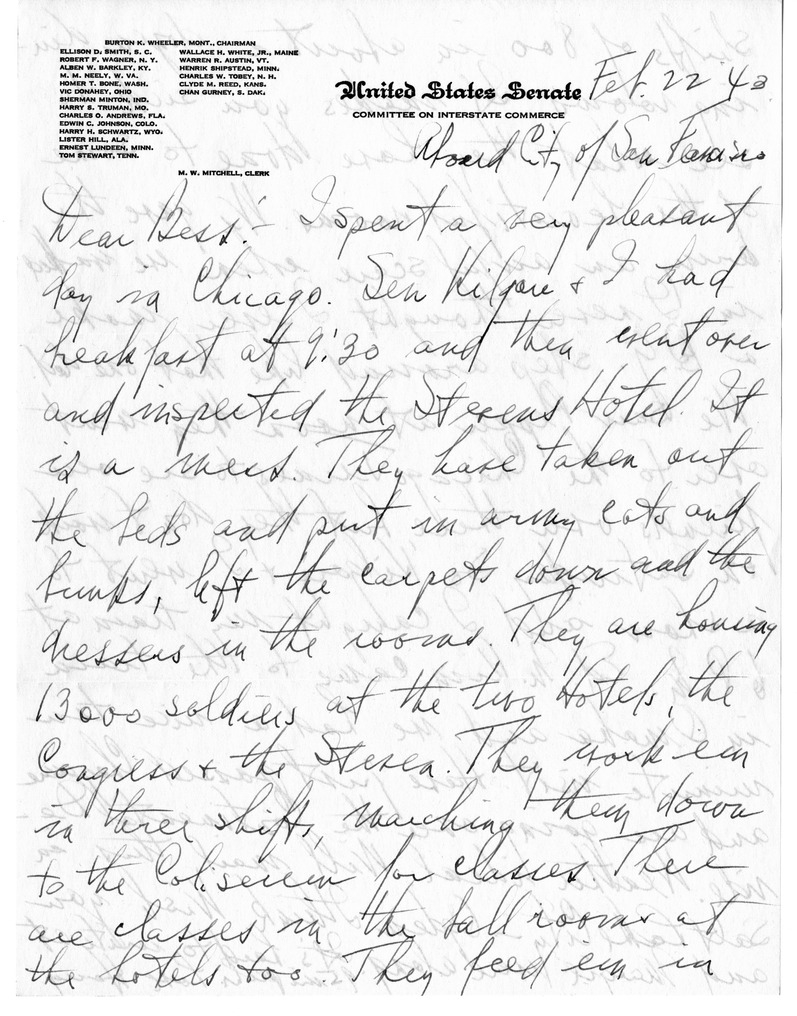 BURTON K. WHEELER, MONT., CHAIRMAN
ELLISON D. SMITH, S. C.
ROBERT F. WAGNER, N. Y.
ALBEN W. BARKLEY, KY.
M. M. NEELY, W. VA.
HOMER T. BONE, WASH.
VIC DONAHEY, OHIO
SHERMAN MINTON, IND.
HARRY S. TRUMAN, MO.
CHARLES O. ANDREWS, FLA.
EDWIN C. JOHNSON, COLO.
HARRY H. SCHWARTZ, WYO.
LISTER HILL, ALA.
ERNEST LUNDEEN, MINN.
TOM STEWART, TENN.
WALLACE H. WHITE, JR., MAINE
WARREN R. AUSTIN, VT.
HENRIK SHIPSTEAD, MINN.
CHARLES W. TOBEY, N. H.
CLYDE M. REED, KANS.
CHAN GURNEY, S. DAK.
M. W. MITCHELL, CLERK
United States Senate
COMMITTEE ON INTERSTATE COMMERCE
Feb. 22 43
Aboard City of San Francisco
Dear Bess:- I spent a very pleasant
day in Chicago. Sen Kilgore & I had
breakfast at 9:30 and then went over
and inspected the Stevens Hotel. It
is a mess. They have taken out
the beds and put in army cots and
bunks, left the carpets down and the
dressers in the rooms. They are housing
13000 soldiers at the two Hotels, the
Congress & the Steven. They work em
in three shifts, marching them down
to the Coliseum for classes. There
are classes in the ball rooms at
the hotels too. They feed em in